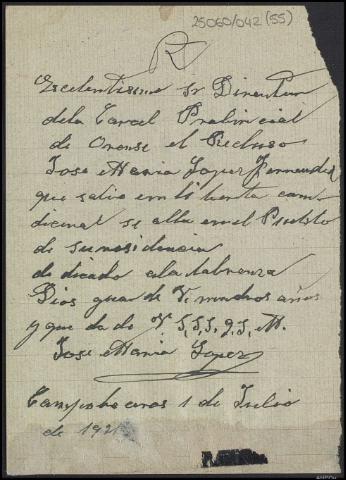 25060/042 (55)
R
Escelentisimo Sr Director
dela Carcel Probincial
de Orense el Recluso
Jose Maria Lopez Fernandez
que salio em li berta com
dicional se alla en el Pueblo
de su residencia
de dicado ala labranza
Dios guar de V. muchos años
y que da de V. S,S,S, q, S, M.
Jose Maria Lopez
Campobeceros 1 de Julio
de 192